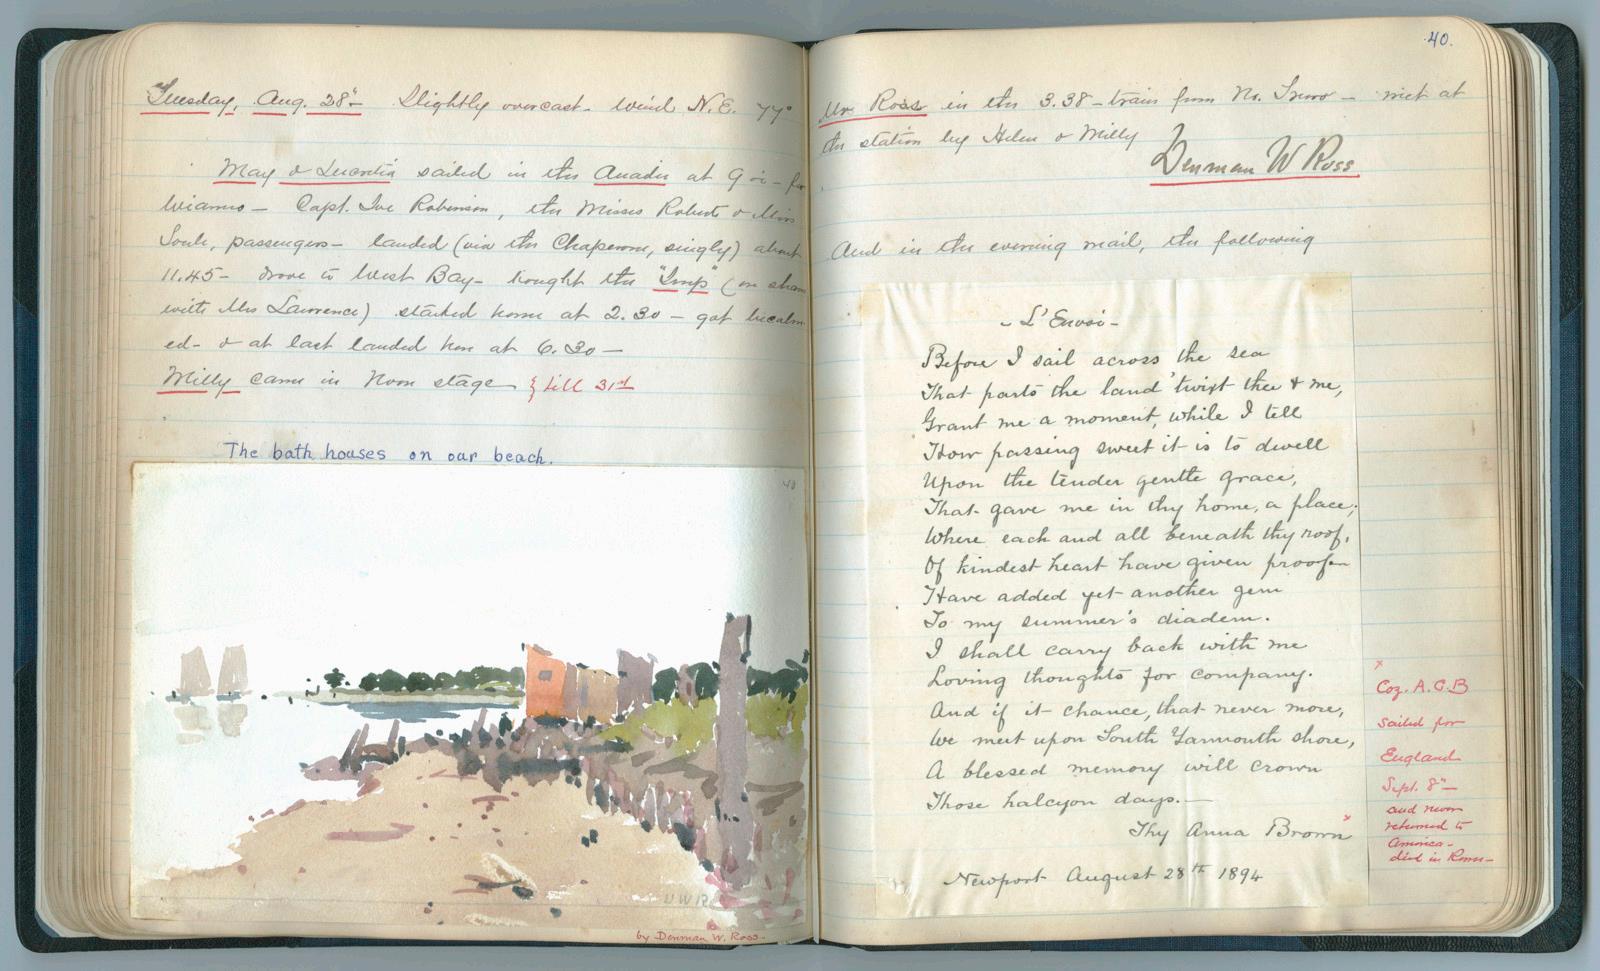 Tuesday, Aug. 28th Slightly overcast - wind N.E. 77°
May & Lucretia sailed in the at 9 - for
Wianno - Capt. Joe Robinson, the Misses Roberts & Miss
Soule, passengers - landed (via the Chaperone, singly) about
11.45 - drove to West Bay - bought the "Imp" (on shares
with Mrs Lawrence) started home at 2.30 - got becalm
ed - & at last landed here at 6.30 -
Milly came in Noon stage } till 31st
The bath houses on our beach.
40
D W R
by Denman W. Ross -
40.
Mr Ross in the 3.38 - train from No. Truro - met at
the station by Helen & Milly
Denman W Ross
And in the evening mail, the following
- L'Envoi -
Before I sail across the sea
That parts the land 'twixt thee & me,
Grant me a moment, while I tell
How passing sweet it is to dwell
Upon the tender gentle grace,
That gave me in thy home, a place;
Where each and all beneath thy roof,
Of kindest heart have given proof -
Have added yet another gem
To my summer's diadem.
I shall carry back with me
Loving thoughts for company.
And if it chance, that never more,
We meet upon South Yarmouth shore,
A blessed memory will crown
Those halcyon days. -
Thy Anna Brown x
Newport August 28th 1894
x
Coz. A. C. B
sailed for
England
Sept. 8th -
and never
returned to
America -
died in Rome -